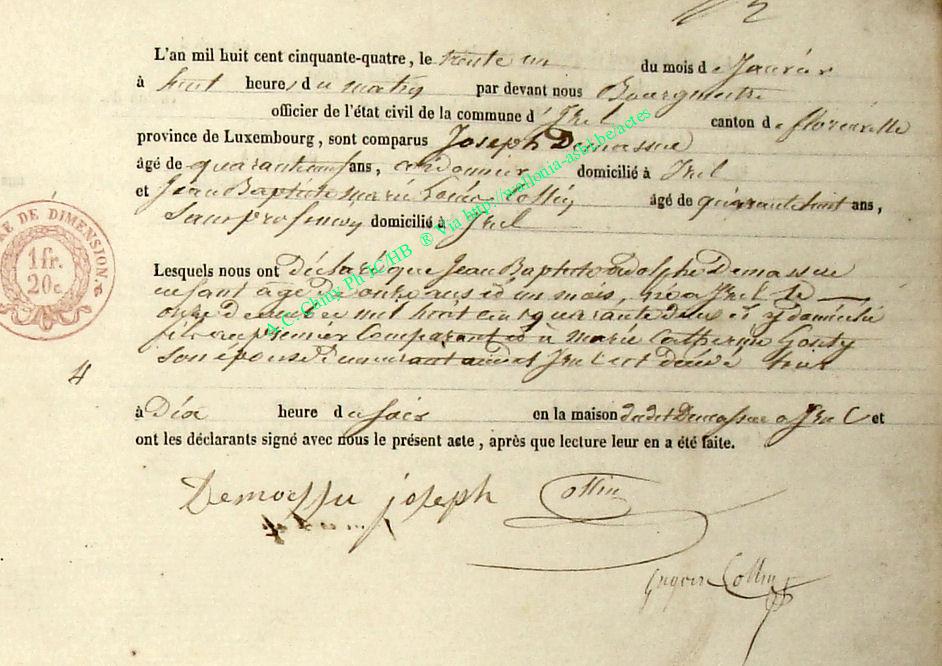 L'an mil huit cent cinquante-quatre, le trente un du mois de Janvier
à huit heures du matin par devant nous Bourgmestre
officier de l'état civil de la commune d'Izel canton de florenville
province de Luxembourg, sont comparus Joseph Demassue
âgé de quarante ans, cordonnier domicilié à Izel
et Jean Baptiste marie Collin âgé de quarante huit ans,
Sans profession domicilié à Izel
Lesquels nous ont Déclaré que Jean Baptiste adolphe Demassue
enfant âgé de onze ans et un mois, né a Izel le
onze décembre mil huit cent quarante deux et y domicilié
fils au premier Comparant et à marie Catherine
Son épouse Demeurant audit Izel est décédé hier
à Dix heure du soir en la maison dudit Demassue a Izel et
ont les déclarants signé avec nous le présent acte, après que lecture leur en a été faite.
Demassu joseph Collin
Collin
4
DE DIMENSION
1 fr.
20 c.
A.C. Chiny Ph ICHB ® Via http://wallonia-asbl.be/actes